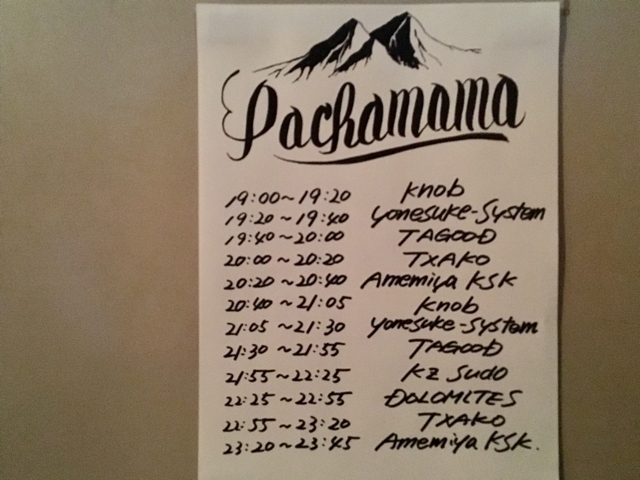 Pachamama
19:00~19:20 Knob
19:20~19:40 Yonesuke-System
19:40~20:00 TAGOOD
20:00~20:20 TXAKO
20:20~20:40 Amemiya KSK
20:40~21:05 Knob
21:05~21:30 Yonesuke-System
21:30~21:55 TAGOOD
21:55~22:25 KZ Sudo
22:25~22:55 DOLOMITES
22:55~23:20 TXAKO
23:20~23:45 Amemiya KSK.